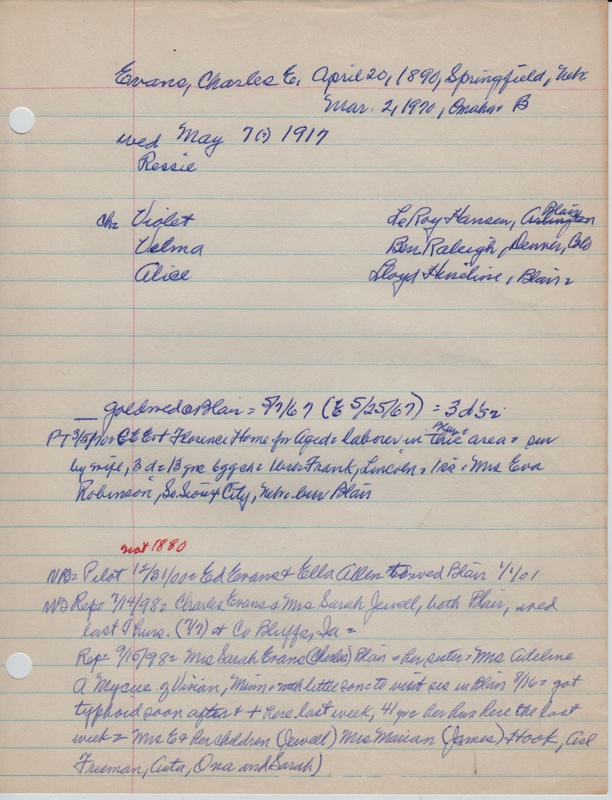 Evans, Charles E. April 20, 1890, Springfield, Nebr.
Mar. 2, 1970, Omaha = B
wed May 7 (?) 1917
Ressie
ch = Violet LeRoy Hansen, Arlington Blair
Velma Ben Raleigh, Denver, Colo
Alice Lloyd Heneline, Blair =
goldwed @ Blair = 5/7/67 (E 5/25/67) = 3 d's =
PT 3/5/70 = CEE + Florence Home for Aged = laborer in this area = sur
by wife, 3 d = 13 grc 6 ggch = bro = Frank, Lincoln = 1 sis = Mrs Eva
Robinson, So. Sioux City, Nebr = bur Blair
not 1880
Pilot 12/31/00 = Ed Evans + Ella Allen wed Blair 1/1/01
Rep = 7/14/98 = Charles Evans & Mrs Sarah Jewell, both Blair, wed
last Thurs. (7/7) at Co Bluffs, Ia =
Rep = 9/15/98 = Mrs Sarah Evans (Charles) Blair = her sister = Mrs Adeline
A Mycue of Vivian, Minn = with little son = to visit sis in Blair 8/16 = got
typhoid soon after + + here last week, 41 yr = her hus here the last
week = Mrs E + her children (Jewell) Mrs Marian (James) Hook,
Freeman, Asta, Ona and Sarah)